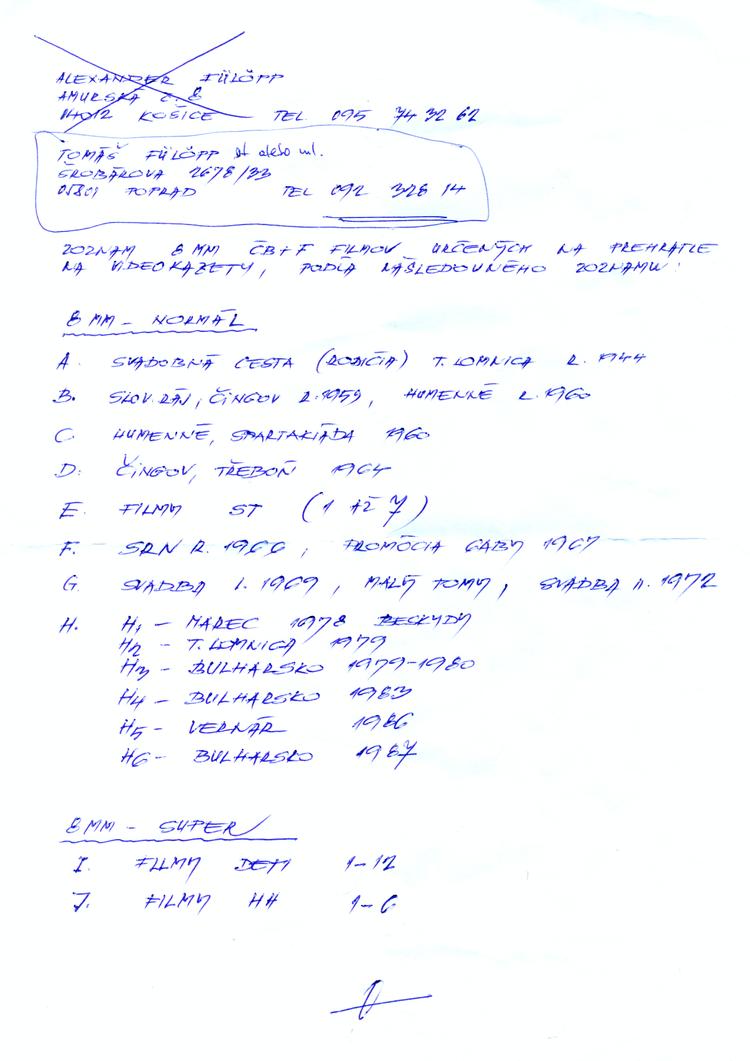 ALEXANDER FÜLÖPP
AMURSKÁ Č. 8
04012 KOŠICE TEL 095 74 32 62
TOMÁŠ FÜLÖPP st alebo ml.
ŠROBÁROVA 2678/33
05801 POPRAD TEL 092 328 14
ZOZNAM 8 MM ČB+F FILMOV URČENÝCH NA PREHRATIE
NA VIDEOKAZETY, PODĽA NÁSLEDOVNÉHO ZOZNAMU:
8 MM - NORMÁL
A. SVADOBNÁ CESTA (RODIČIA) T. LOMNICA R. 1944
B. SLOV. RAJ, ČINGOV R. 1959, HUMENNÉ R. 1960
C. HUMENNÉ, SPARTAKIÁDA 1960
D. ČINGOV, TŘEBOŇ 1964
E. FILMY ST (1 AŽ 7)
F. SRN R. 1966, PROMÓCIA GABY 1967
G. SVADBA I. 1969, MALÝ TOMY, SVADBA II. 1972
H. H1 - MAREC 1978 BESKYDY
H2 - T. LOMNICA 1979
H3 - BULHARSKO 1979-1980
H4 - BULHARSKO 1983
H5 - VERNÁR 1986
H6 - BULHARSKO 1987
8 MM - SUPER
I. FILMY DETI 1-12
J. FILMY HH 1-6